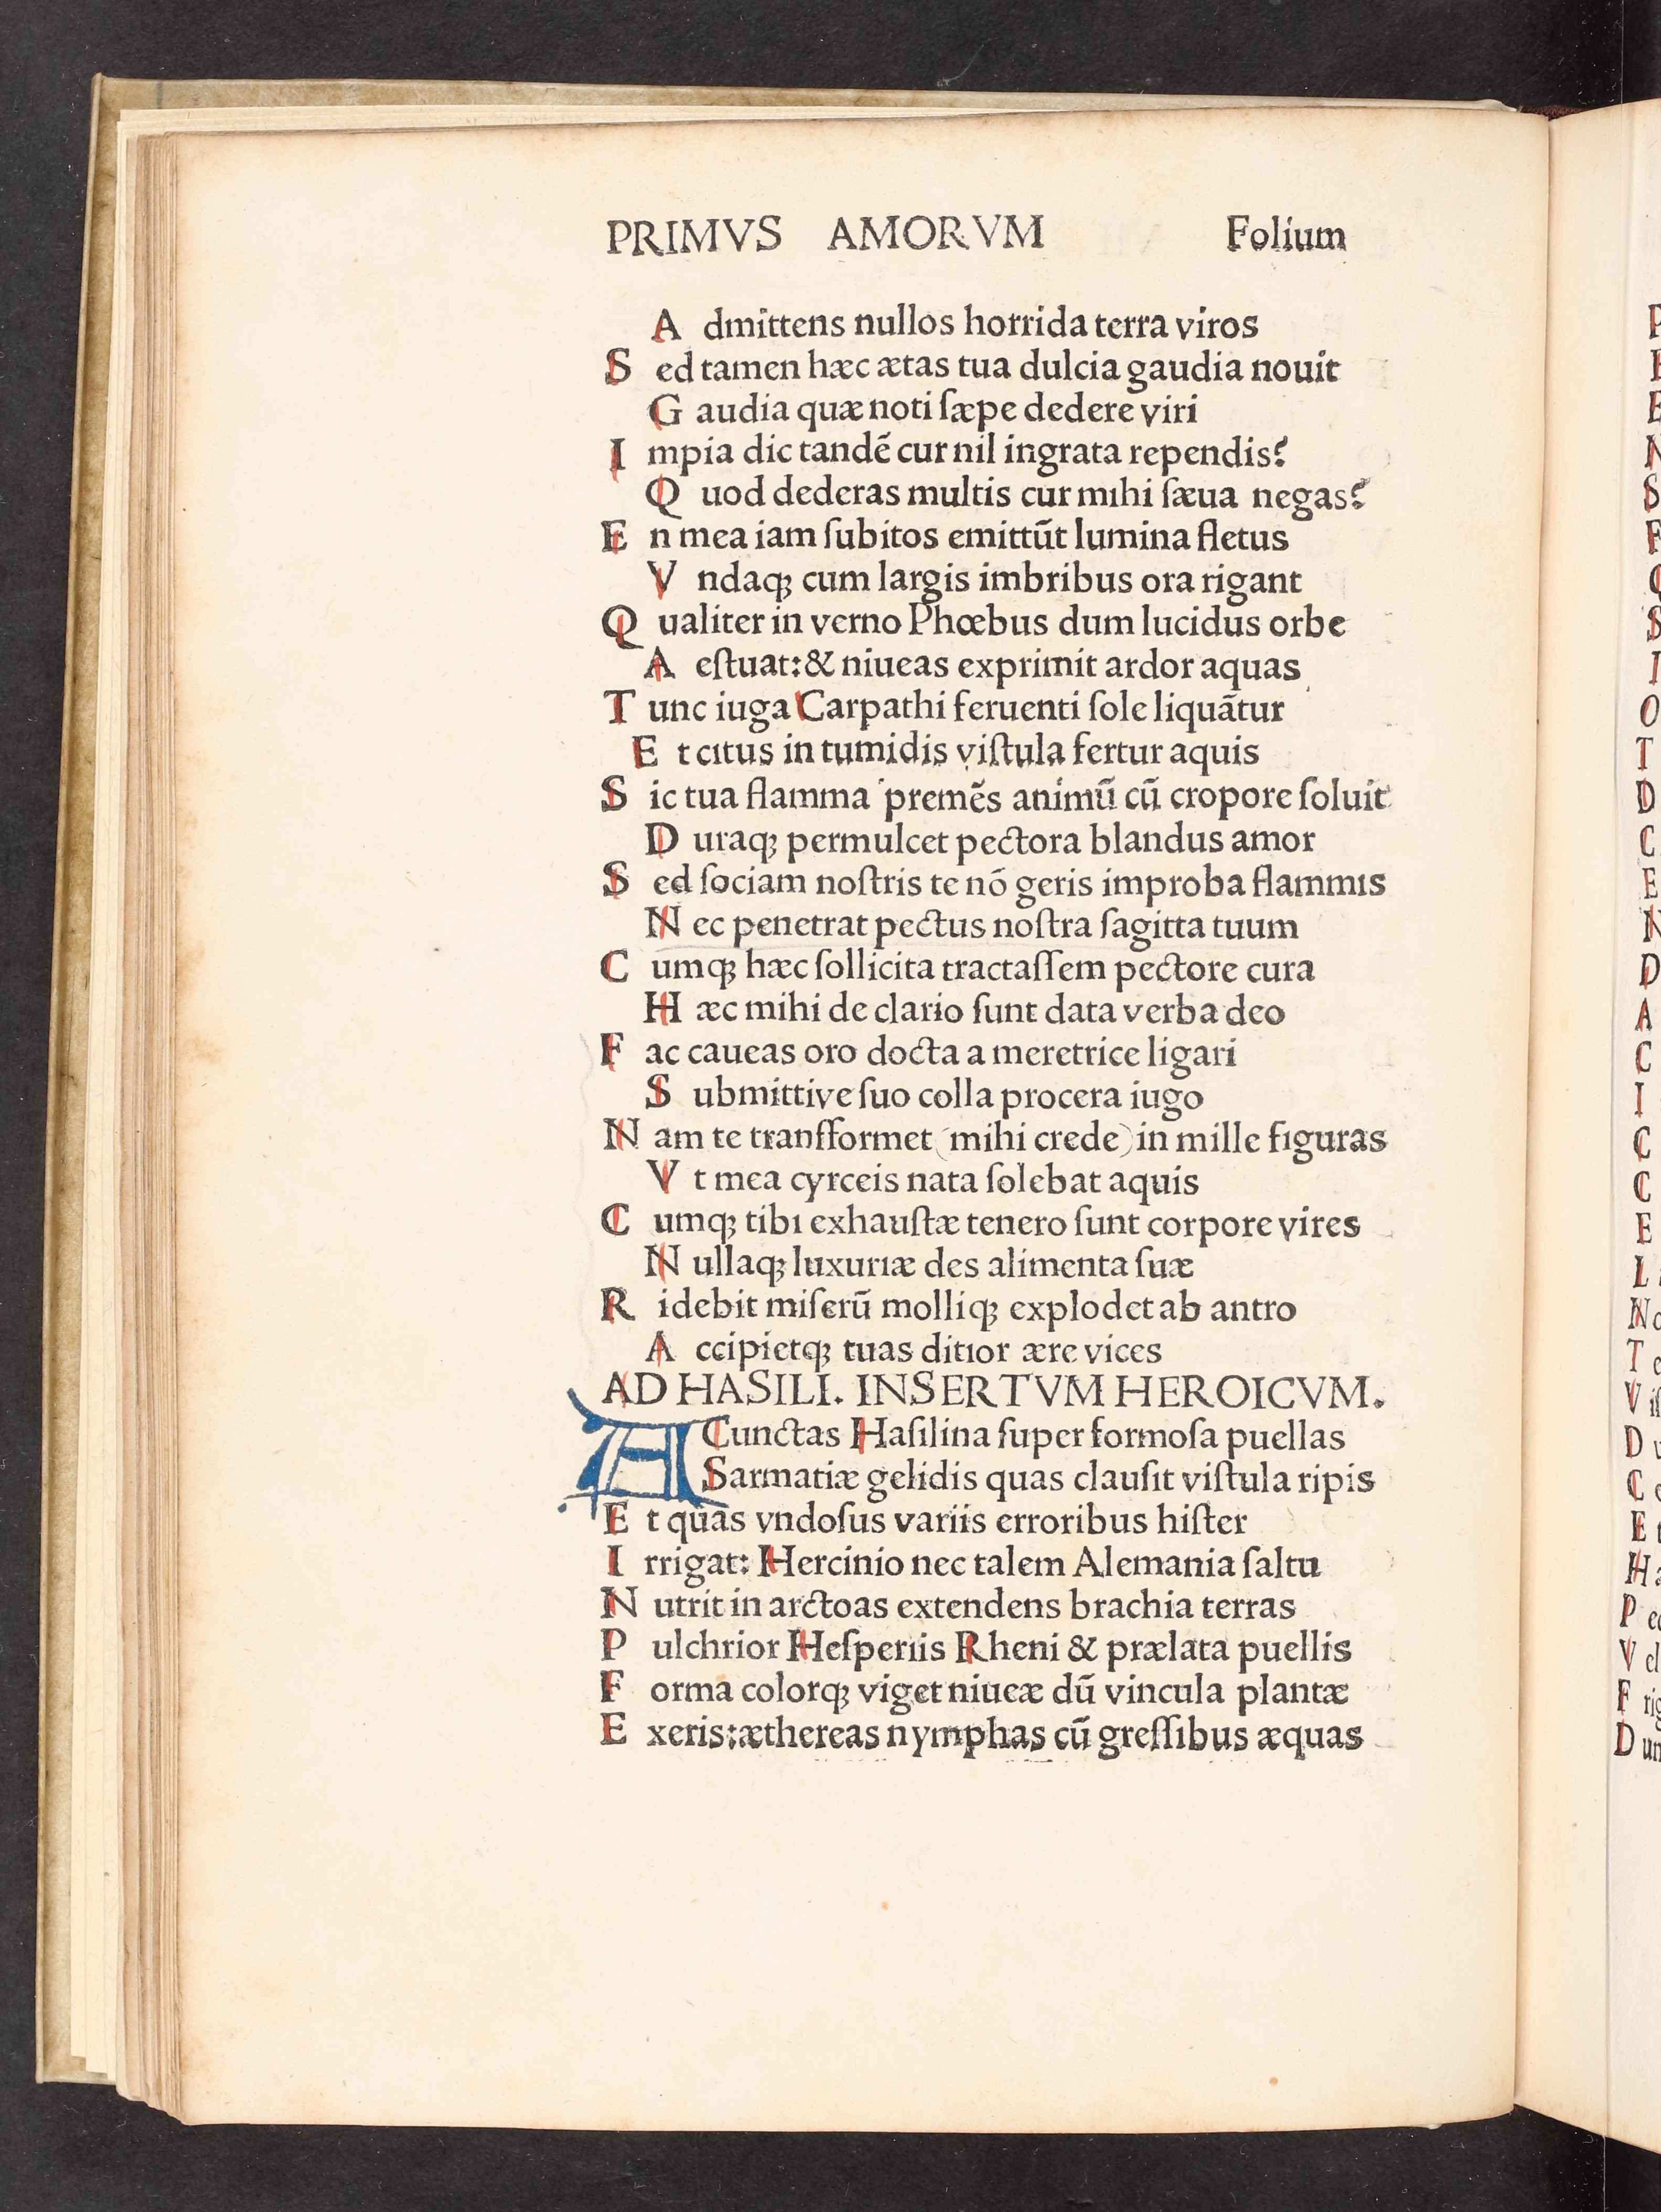 PRIMVS AMORVM Folium
A dmittens nullos horrida terra viros
S ed tamen hæc ætas tua dulcia gaudia nouit
G audia quæ noti ſæpe dedere viri
I mpia dic tandē cur nil ingrata rependis?
Q uod dederas multis cur mihi ſæua negas?
E n mea iam ſubitos emittūt lumina fletus
V ndaqꝫ cum largis imbribus ora rigant
Q ualiter in verno Phœbus dum lucidus orbe
A eſtuat: & niueas exprimit ardor aquas
T unc iuga Carpathi feruenti ſole liquātur
E t citus in tumidis viſtula fertur aquis
S ic tua flamma premēs animū cū cropore ſoluit
D uraqꝫ permulcet pectora blandus amor
S ed ſociam noſtris te nō geris improba flammis
N ec penetrat pectus noſtra ſagitta tuum
C umqꝫ hæc ſollicita tractaſſem pectore cura
H æc mihi de clario ſunt data verba deo
F ac caueas oro docta a meretrice ligari
S ubmittive ſuo colla procera iugo
N am te tranſformet (mihi crede) in mille figuras
V t mea cyrceis nata ſolebat aquis
C umqꝫ tibi exhauſtæ tenero ſunt corpore vires
N ullaqꝫ luxuriæ des alimenta ſuæ
R idebit miſerū molliqꝫ explodet ab antro
A ccipietqꝫ tuas ditior ære vices
AD HASILI. INSERTVM HEROICVM.
A Cunctas Haſilina ſuper formoſa puellas
Sarmatiæ gelidis quas clauſit viſtula ripis
E t quas vndoſus variis erroribus hiſter
I rrigat: Hercinio nec talem Alemania ſaltu
N utrit in arctoas extendens brachia terras
P ulchrior Heſperiis Rheni & prælata puellis
F orma colorqꝫ viget niueæ dū vincula plantæ
E xeris: æthereas nymphas cū greſſibus æquas